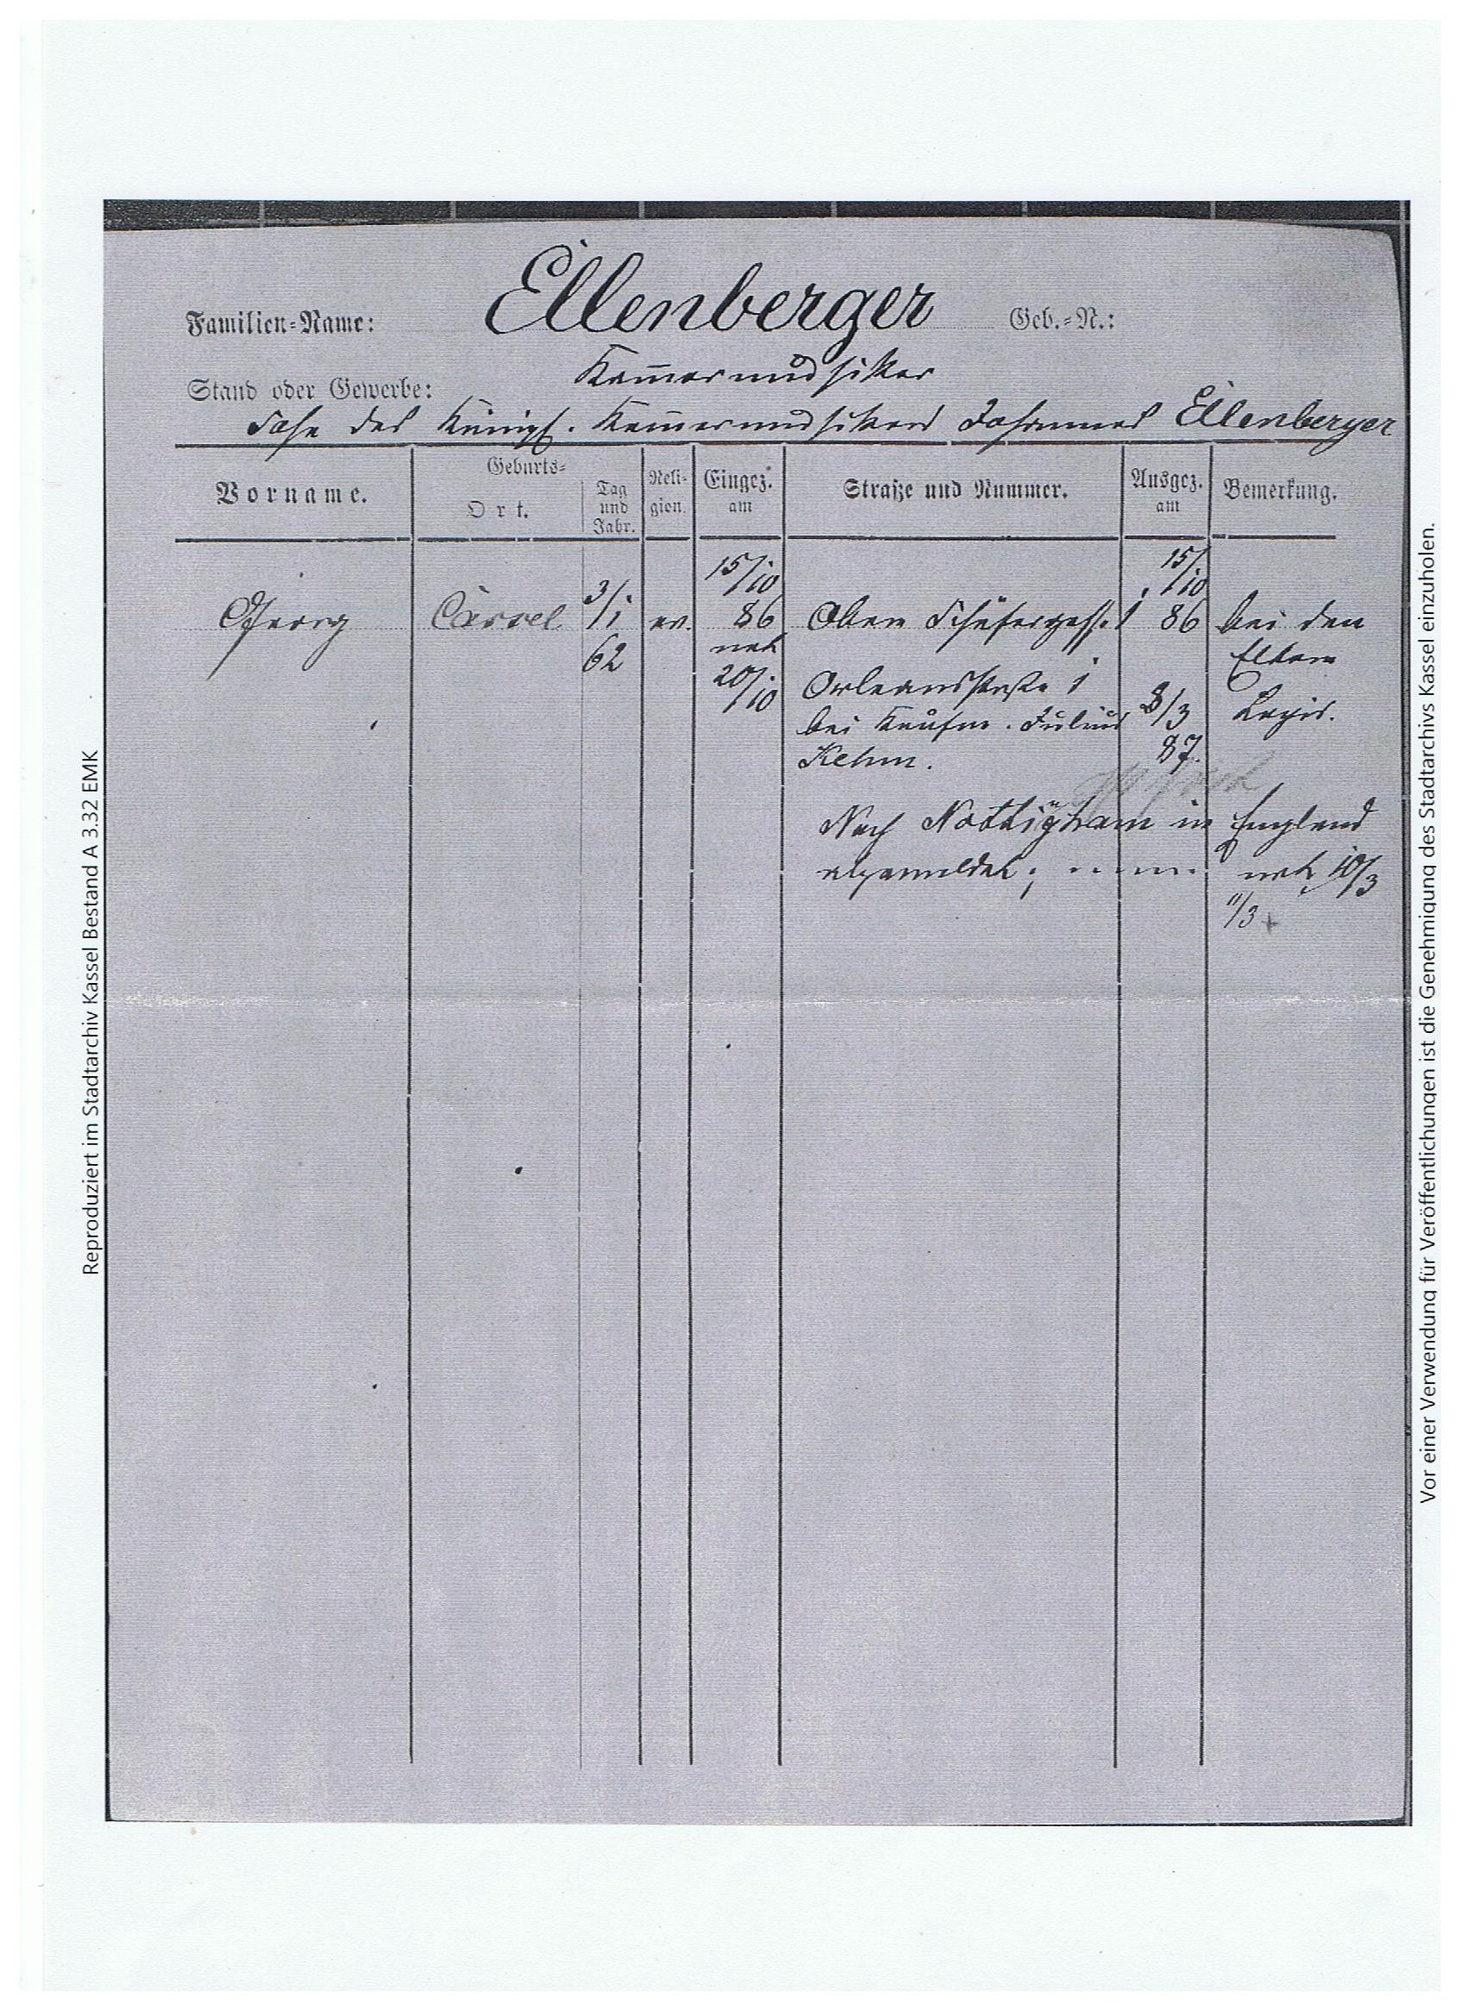 Familien-Name: Ellenberger Geb.-N.:
Stand oder Gewerbe: Kam̅ermusiker
Sohn des Königl. Kam̅ermusikers Johannes Ellenberger
Vorname. Geburts- Ort. Tag und Jahr. Reli-gion. Eingez. am Straße und Nummer. Ausgez. am Bemerkung.
15/10 15/10
Georg Cassel 3/1 ev. 86 Obere Schäfergasse 1 86 bei den
62 Eltern
20/10 Orleansstraße 1 8/3 Logis.
bei Kaufm. Julius 87.
Kehm.
Nach Nottigham in England
abgemeldet; 10/3
11/3 +
Reproduziert im Stadtarchiv Kassel Bestand A 3.32 EMK
Vor einer Verwendung für Veröffentlichungen ist die Genehmigung des Stadtarchivs Kassel einzuholen.